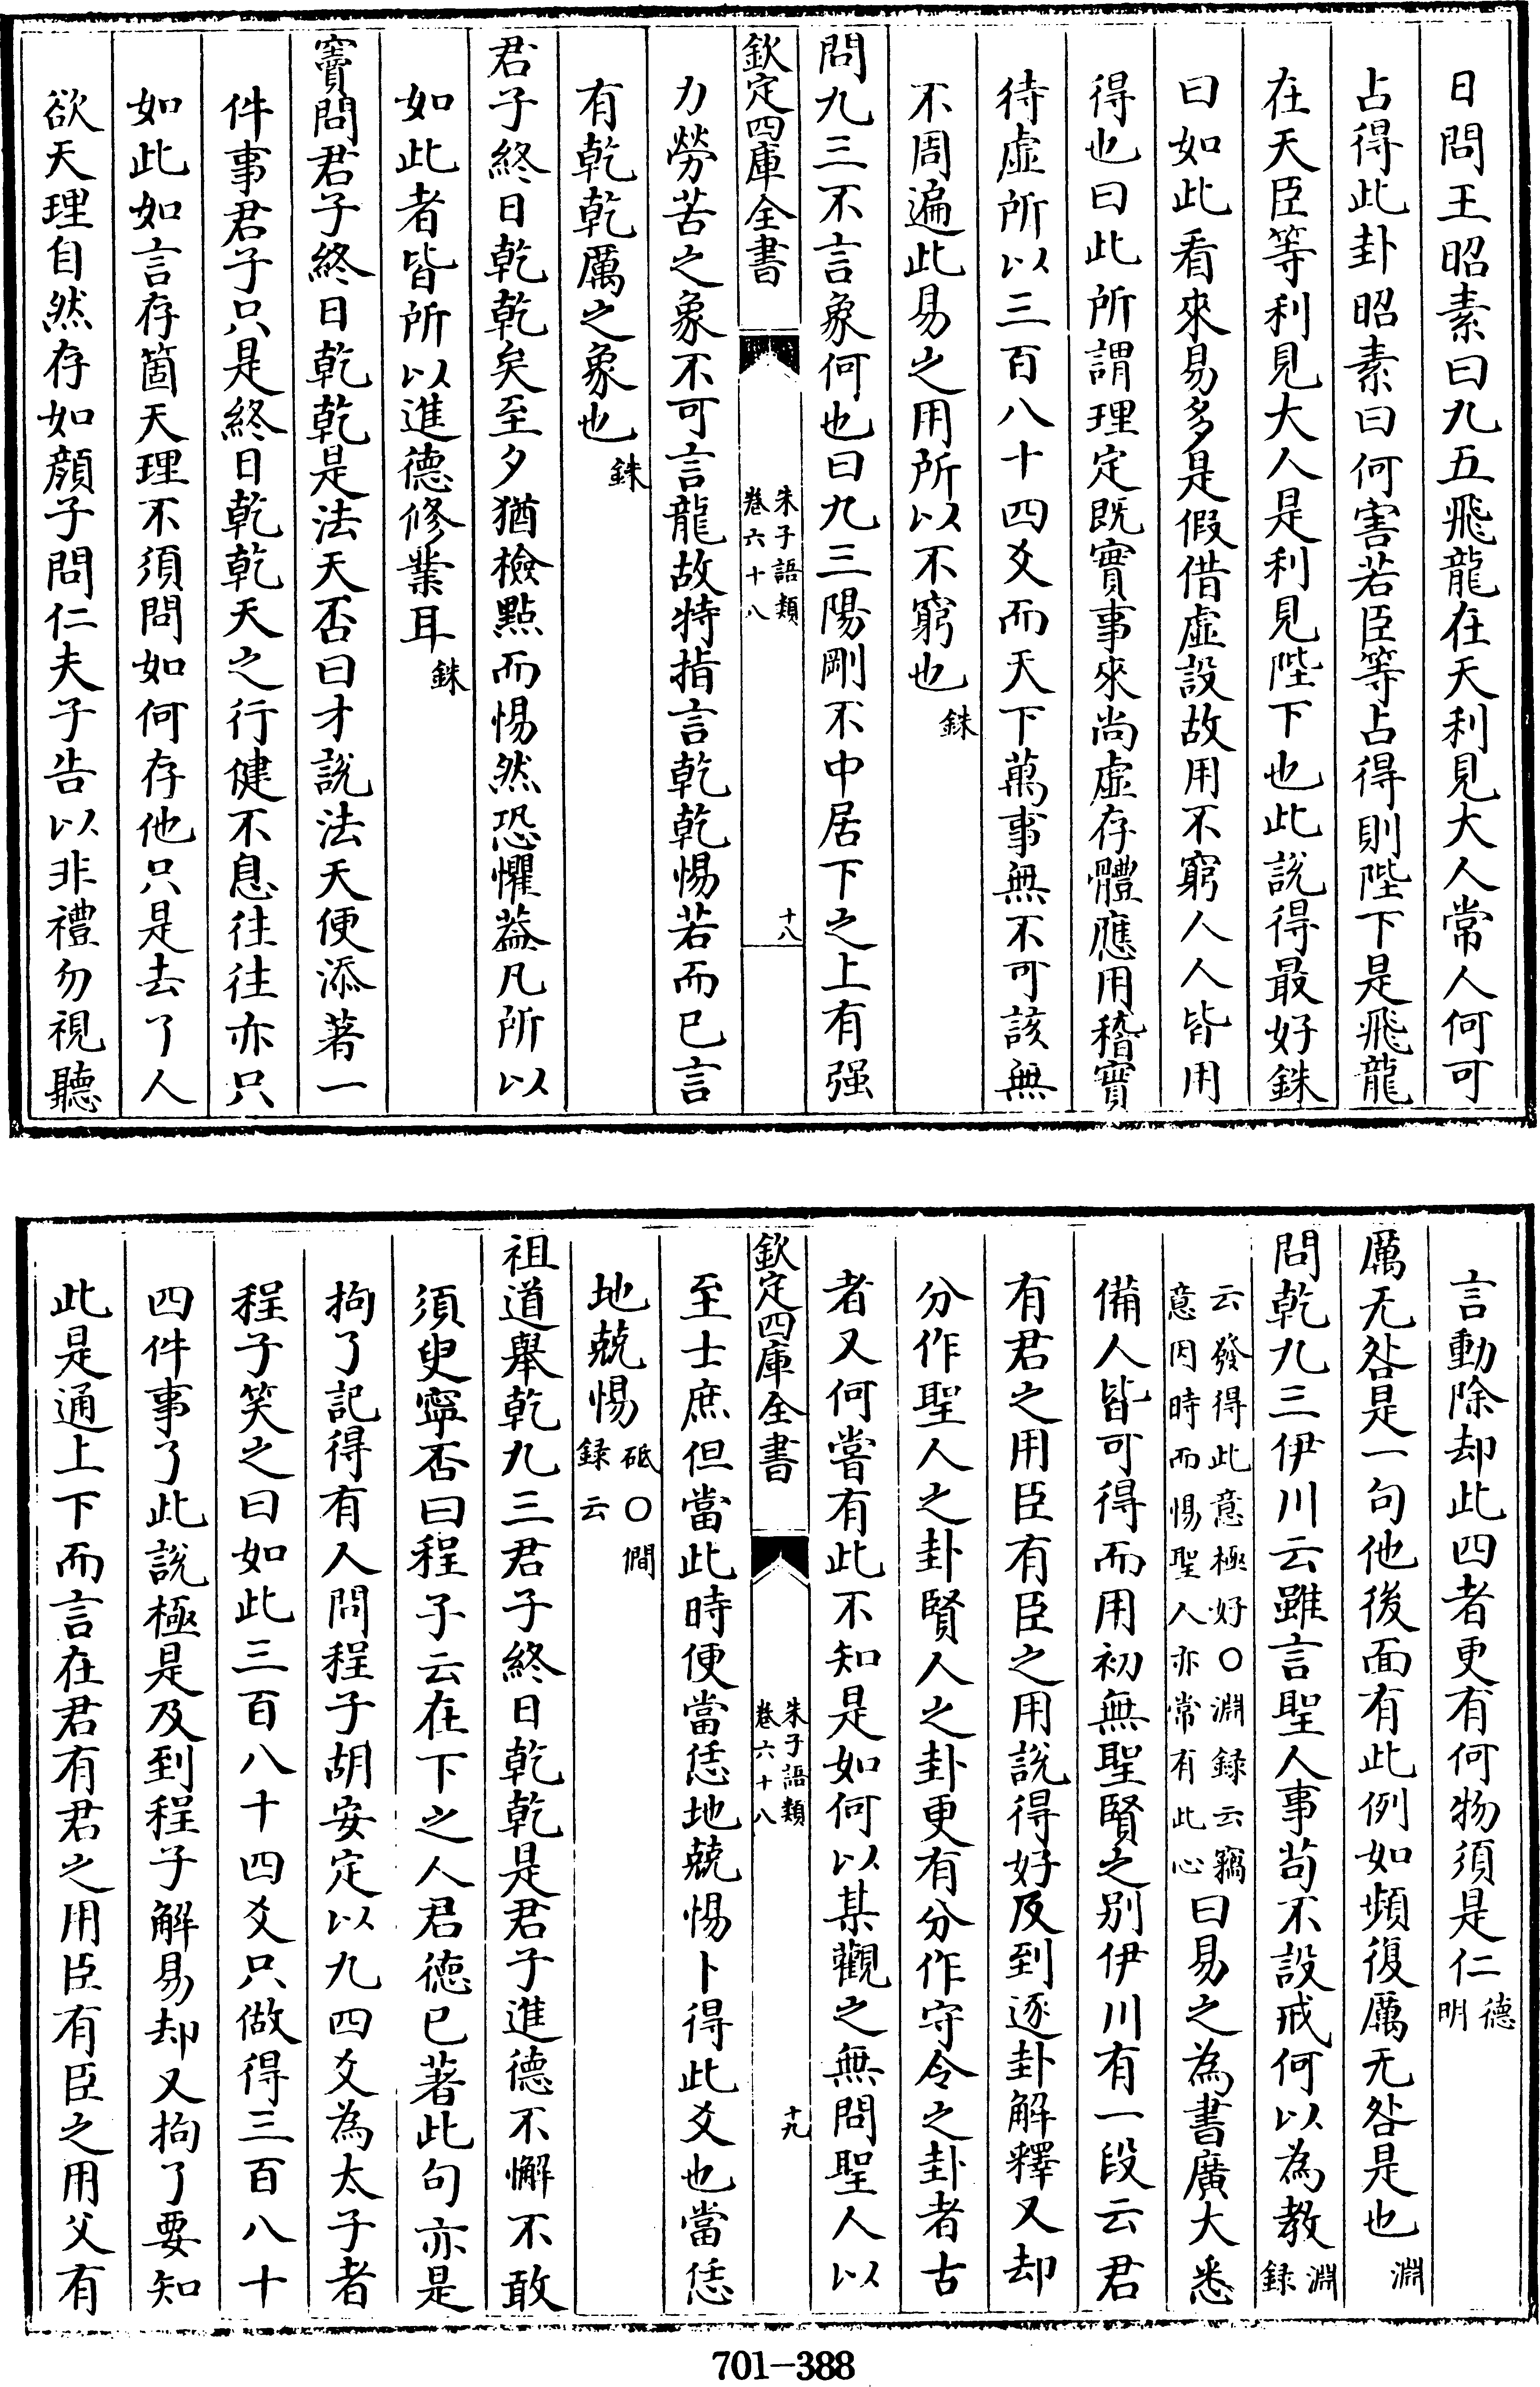 日問王昭素曰九五飛龍在天利見大人常人何可
占得此卦昭素曰何害若臣等占得則陛下是飛龍
在天臣等利見大人是利見陛下也此說得最好銖
曰如此看來易多是假借虛設故用不窮人人皆用
得也曰此所謂理定既實事來尚虛存體應用稽實
待虛所以三百八十四爻而天下萬事無不可該無
不周遍此易之用所以不窮也銖
問九三不言象何也曰九三陽剛不中居下之上有强
欽定四庫全書
朱子語類
卷六十八
十八
力勞苦之象不可言龍故特指言乾乾惕若而已言
有乾乾厲之象也銖
君子終日乾乾矣至夕猶檢點而惕然恐懼葢凡所以
如此者皆所以進德修業耳銖
竇問君子終日乾乾是法天否曰才說法天便添著一
件事君子只是終日乾乾天之行健不息往往亦只
如此如言存箇天理不須問如何存他只是去了人
欲天理自然存如顏子問仁夫子告以非禮勿視聽
言動除却此四者更有何物須是仁德明
厲无咎是一句他後面有此例如頻復厲无咎是也淵
問乾九三伊川云雖言聖人事苟不設戒何以為教淵録
云發得此意極好○淵録云竊
意因時而惕聖人亦常有此心
曰易之為書廣大悉
備人皆可得而用初無聖賢之别伊川有一段云君
有君之用臣有臣之用說得好及到逐卦解釋又却
分作聖人之卦賢人之卦更有分作守令之卦者古
者又何嘗有此不知是如何以某觀之無問聖人以
欽定四庫全書
朱子語類
卷六十八
十九
至士庶但當此時便當恁地兢惕卜得此爻也當恁
地兢惕砥○僩録云
祖道舉乾九三君子終日乾乾是君子進德不懈不敢
須臾寧否曰程子云在下之人君德已著此句亦是
拘了記得有人問程子胡安定以九四爻為太子者
程子笑之曰如此三百八十四爻只做得三百八十
四件事了此說極是及到程子解易却又拘了要知
此是通上下而言在君有君之用臣有臣之用父有
701-388